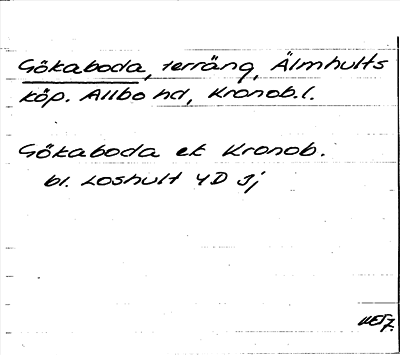 Gökaboda, terräng, Älmhults
köp. Allbo hd, Kronob.l.
Gökaboda ek Kronob.
bl. Loshult 4D 3j